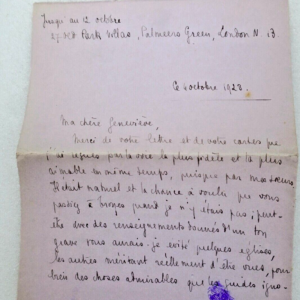 Jusqu'au 12 octobre
27 Old Park Villas, Palmers Green, London N. 13
Ce 4 octobre 1928
Ma chère Geneviève,
Merci de votre lettre et de votre cartes que
j'ai reçues par la voie la plus fidèle et la plus
aimable en même temps, puisque par mes sœurs
Il était naturel et la chance a voulu que vous
passiez à Broges quand je n'y étais pas; peut-
être avec des renseignements donnés d'un ton
grave vous aurais-je évité quelques églises,
les autres méritant réellement d'être vues, pour
des choses admirables que les guides igno-